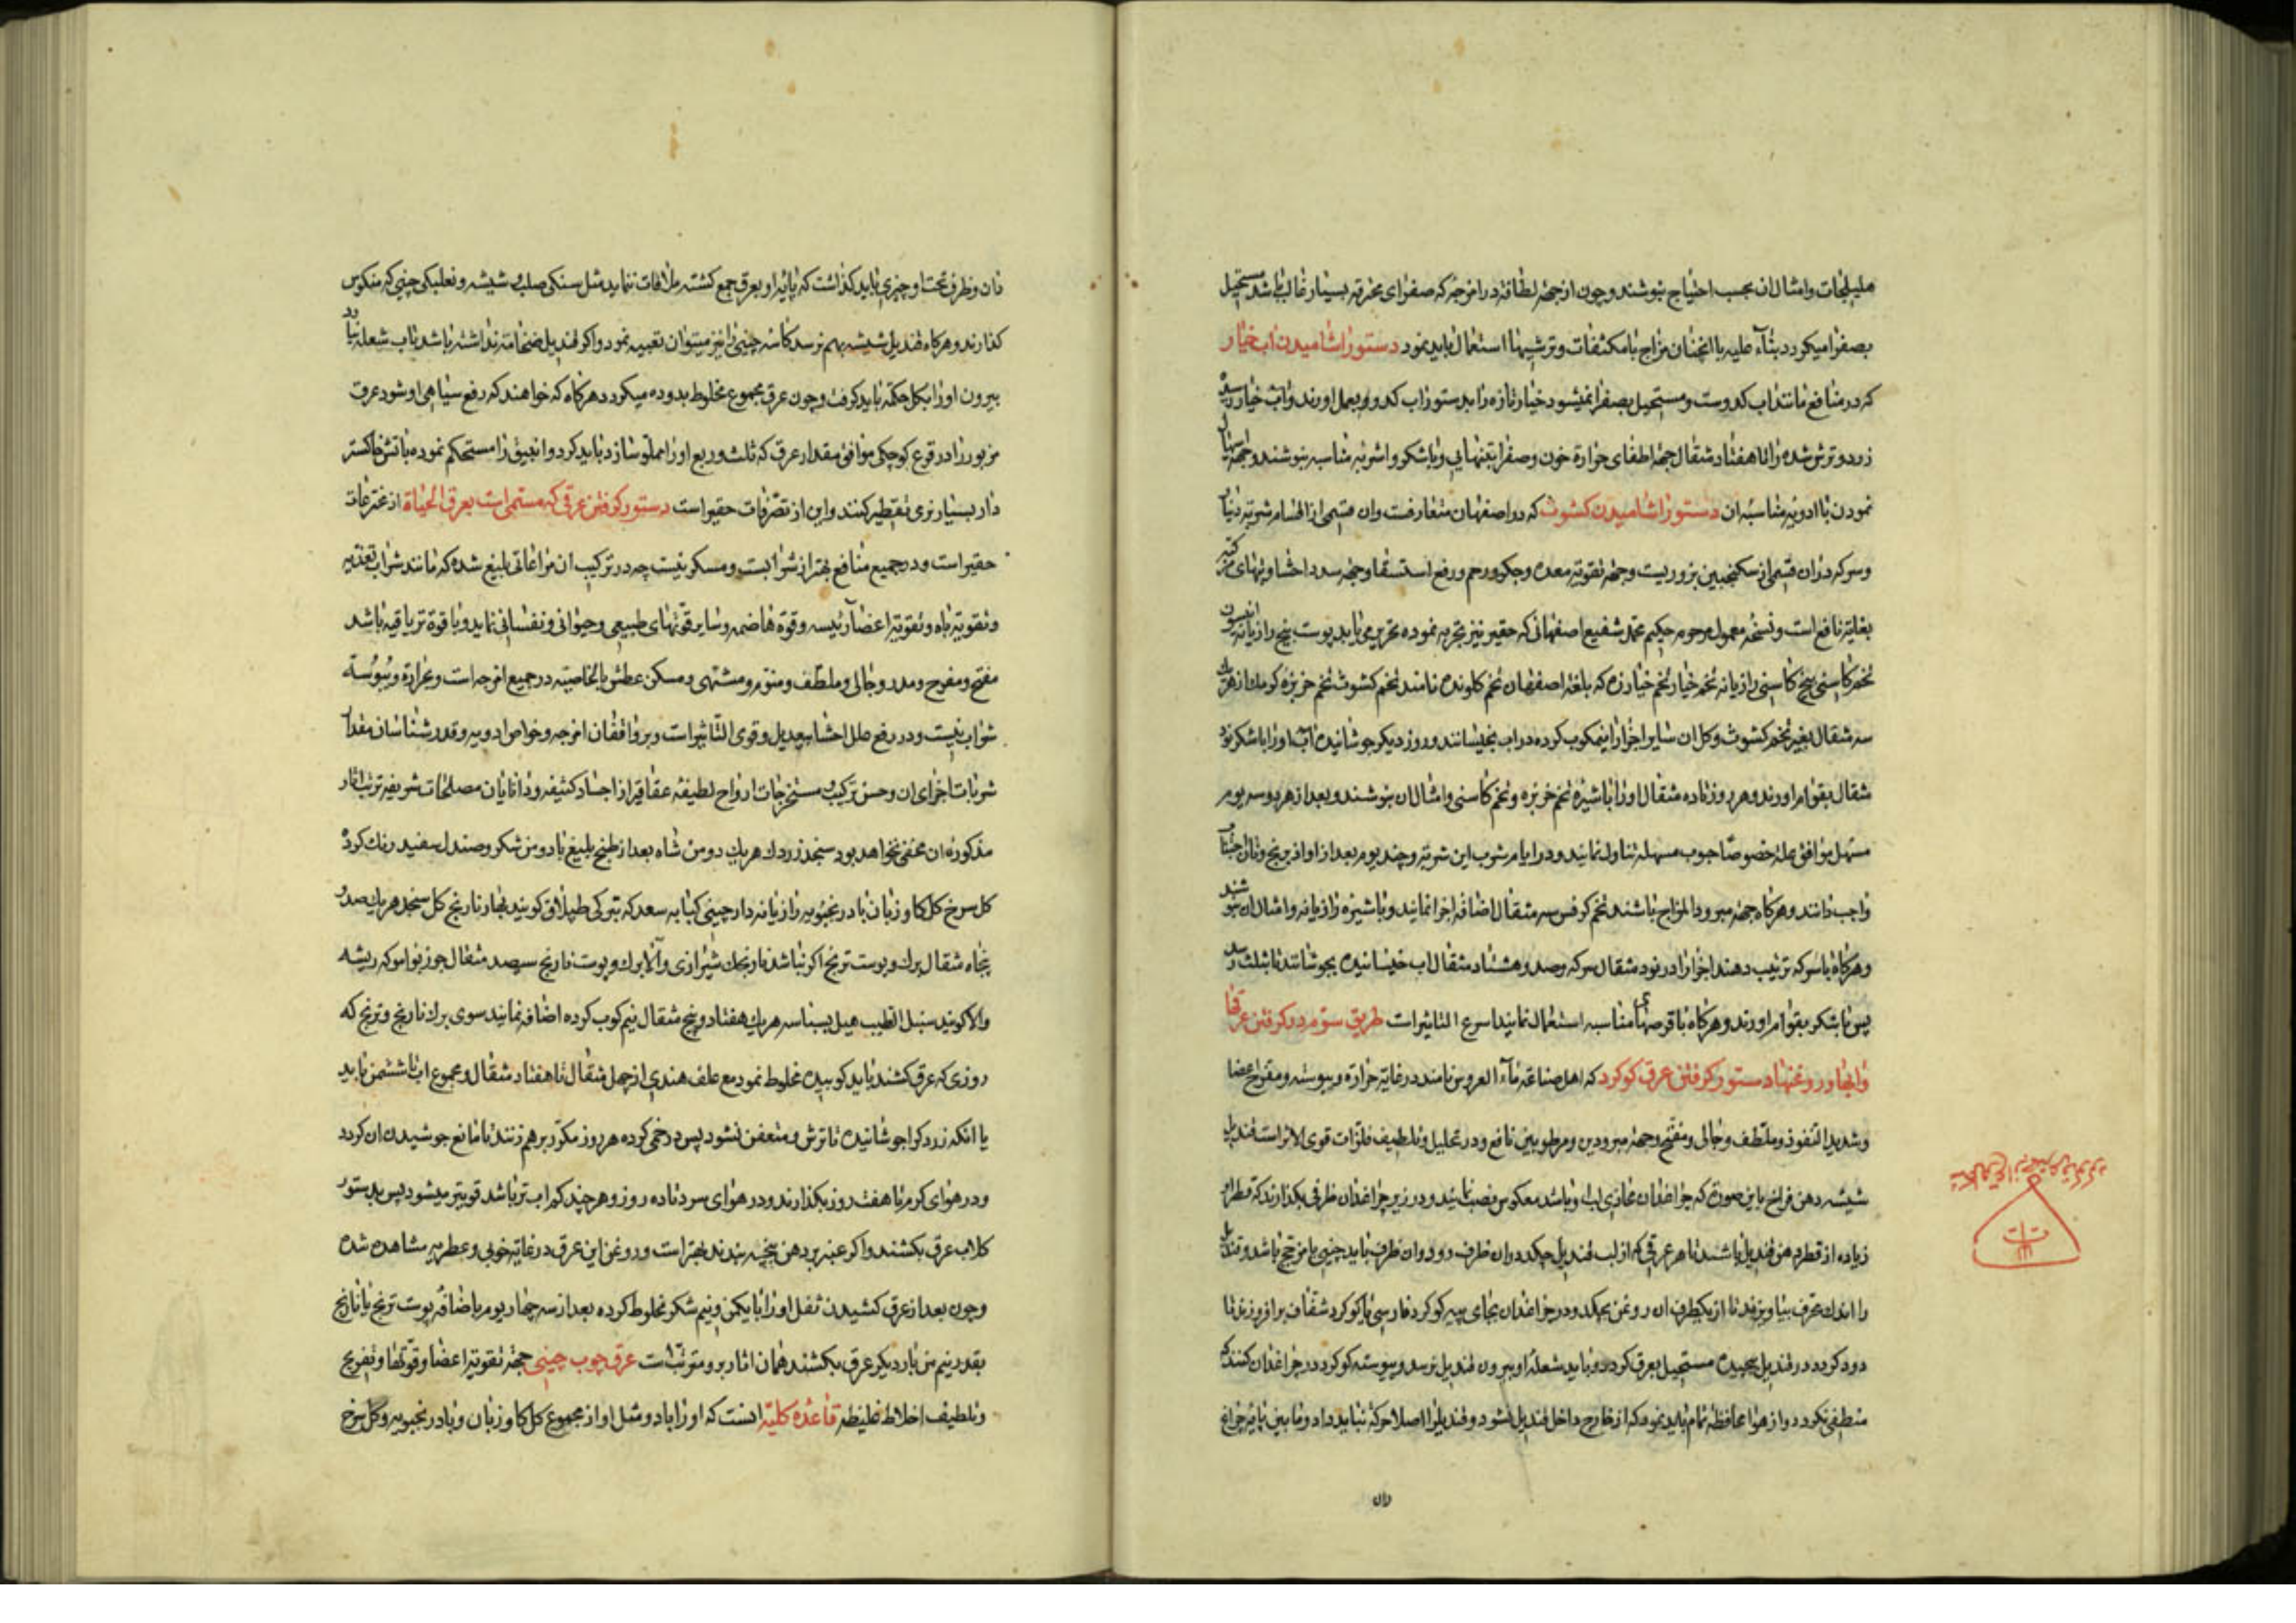 هلیلجات وامثال ان بحسب احتیاج بنوشند وچون ازجهة لطافة در امزجه که صفرای محرقه بسیار غالب باشد مستحیل
بصفرا میکردد بنآء علیه باانچنان مزاج بامکثفات وترشیها استعمال باید نمود دستور اشامیدن اب خیار
که درمنافع مانند اب کدوست ومستحیل بصفرا نمیشود خیار تازه را بدستور اب کدو بعمل اورند واب خیار رسیده
زرد وترش شده را تا هفتاد مثقال جهة اطفای حرارة خون وصفرا بتنهایی ویا باشکر واشربه مناسبه بنوشند وجهة اسهال
نمودن با ادویه مناسبه ان دستور اشامیدن کشوث که در اصفهان متعارفست وان قسمی از اقسام شربة دینار
وسرکه دران قسمی از سکنجبین بزوریست وجهة تقویة معده وجکر ورحم ورفع استسقا وجهة سدد احشا وتبهای مرکبه
بغایة نافع است ونسخه معمول مرحوم حکیم محمد شفیع اصفهانی که حقیر نیز تجربه نموده تحریر می یابد پوست بیخ رازیانه انیسون
تخم کاسنی بیخ کاسنی رازیانه تخم خیار تخم خیارزه که بلغة اصفهان تخم کلونده نامند تخم کشوث تخم خربزه کرمک از هریک
سه مثقال بغیر تخم کشوث وکل ان سایر اجزا را نیمکوب کرده در اب بخیسانند وروز دیکر جوشانیده اب اورا باشکر نود
مثقال بقوام اورند وهر روز تا ده مثقال اورا باشیره تخم خربزه وتخم کاسنی وامثال ان بنوشند وبعد از هر دو سه یوم
مسهل موافق علة خصوصا حبوب مسهله تناول نمایند ودر ایام شرب این شربة وچند یوم بعد از او از برنج وماست اجتناب
واجب دانند وهرکاه جهة مبرود المزاج باشد تخم کرفس سه مثقال اضافه اجزا نمایند وباشیره رازیانه وامثال ان بنوشند
وهرکاه باسرکه ترتیب دهند اجزا را در نود مثقال سرکه وصد وهشتاد مثقال اب خیسانیده بجوشانند تا بثلث رسد
پس باشکر بقوام اورند وهرکاه با قرصهای مناسبه استعمال نمایند اسرع التاثیر است طریق سوم در کرفتن عرقها
وابها وروغنها دستور کرفتن عرق کوکرد که اهل صناعة مآء العروس نامند در غایة حرارة ویبوسته ومقرح اعضا
وشدید النفوذ وملطف وجالی ومفتح وجهة مبرودین ومرطوبین نافع ودر تحلیل وتلطیف فلزات قوی الاثر است قندیل
شیشه دهن فراخ باین صورة که چراغدان محاذی لب او باشد معکوس نصب نمایند ودر زیر چراغدان ظرفی بکذارند که قطر ان
زیاده از قطر دهن قندیل باشد تا هر عرقی که از لب قندیل چکد دران ظرف رود وان ظرف باید چینی یا مزجج باشد وقندیل
را اندک محرف بیاویزند تا از یکطرف ان روغن بچکد ودر چراغدان بجای پیه کوکرد فارسی یا کوکرد شفاف برافروزند تا
دود کردد در قندیل پیچیده مستحیل بعرق کردد وباید شعله او بیرون قندیل نرسد وپیوسته کوکرد در چراغدان کنند که
منطفی نکردد واز هوا محافظة تمام باید نمود که از خارج داخل قندیل نشود وقندیل را اصلا حرکة نباید داد وما بین پایه چراغ
دان
دان وظرف تحت او چیزی باید کذاشت که پایه او بعرق جمع کشته ملاقات ننماید مثل سنکی صلب وشیشه ونعلبکی چینی که منکوس
کذارند وهرکاه قندیل شیشه بهم نرسد کاسه چینی را نیز میتوان تعبیه نمود واکر قندیل ضخامة نداشته باشد تاب شعله نیاورد
بیرون اورا بکل حکمة باید کرفت وچون عرق مجموع مخلوط بدوده میکردد هرکاه که خواهند که رفع سیاهی او شود عرق
مزبور را در قرع کوچکی موافق مقدار عرق که ثلث وربع اورا مملو سازد باید کرد وانبیق را مستحکم نموده باتش خاکستر
دار بسیار نرمی تقطیر کنند واین از تصرفات حقیر است دستور کرفتن عرقی که مسمی است بعرق الحیاة از مخترعات
حقیر است ودر جمیع منافع بهتر از شرابست ومسکر نیست چه در ترکیب ان مراعاتی بلیغ شده که مانند شراب تغذیه
وتقویة باه وتقویة اعضآء رئیسه وقوة هاضمه وسایر قوتهای طبیعی وحیوانی ونفسانی نماید وبا قوة تریاقیه باشد
مفتح ومفرح ومدر وجالی وملطف ومنوم ومشتهی ومسکن عطش بالخاصیة در جمیع امزجه است وبحرارة ویبوسة
شراب نیست ودر رفع علل احشا بیعدیل وقوی التاثیر است وبر واقفان امزجه وخواص ادویه وقدر شناسان مقدار
شربات اجزای ان وحسن ترکیب مستخرجات ارواح لطیفه عقاقیر از اجساد کثیفه ودانایان مصلحات شریفه ترتب اثار
مذکوره ان مخفی نخواهد بود سنجد زردک هریک دومن شاه بعد از طبخ بلیغ با دومن شکر وصندل سفید رنک کرده
کل سرخ کل کاوزبان بادرنجبویه رازیانه دارچینی کبابه سعد که بترکی طپلاق کویند بهار نارنج کل سنجد هریک صد و
پنجاه مثقال برک وپوست ترنج اکر نباشد نارنجک شیرازی والا برک وپوست نارنج سیصد مثقال جوزبوا موکه ریشه
والا کویند سنبل الطیب هیل بسباسه هریک هفتاد وپنج مثقال نیم کوب کرده اضافه نمایند سوی برک نارنج وترنج که
روزی که عرق کشند باید کوبیده مخلوط نمود مع علف هندی از چهل مثقال تا هفتاد مثقال ومجموع اب تا ششمن باید
یا انکه زردک را جوشانیده تا ترش ومتعفن نشود پس در خمی کرده هر روز مکرر برهم زنند تا مانع جوشیدن ان کردد
ودر هوای کرم تا هفت روز بکذارند ودر هوای سرد تا ده روز وهر چند کم اب تر باشد قویتر میشود پس بدستور
کلاب عرق بکشند واکر عنبر بر دهن نیچه بندند بهتر است وروغن این عرق در غایة خوبی وعطریه مشاهده شده
وچون بعد از عرق کشیدن ثفل اورا با یکمن ونیم شکر مخلوط کرده بعد از سه چهار یوم باضافه پوست ترنج یا نارنج
بقدر نیم من بار دیکر عرق بکشند همان اثار برو مترتب است عرق چوب چینی جهة تقویة اعضا وقوتها وتفریح
وتلطیف اخلاط غلیظه قاعده کلیه انست که اورا با دو مثل او از مجموع کل کاوزبان وبادرنجبویه وکل سرخ